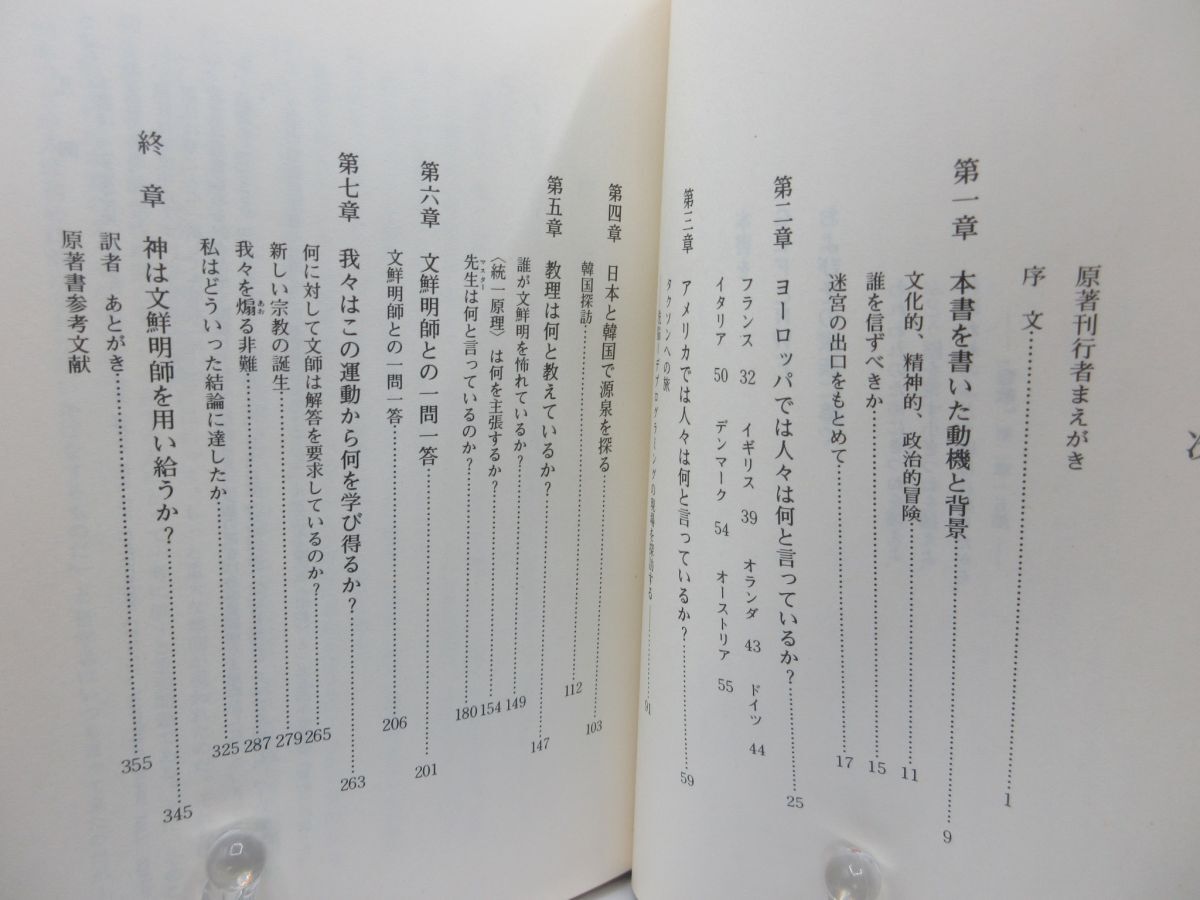 次
原著刊行者まえがき
序　文……1
第一章　本書を書いた動機と背景……9
文化的、精神的、政治的冒険……11
誰を信ずべきか……15
迷宮の出口をもとめて……17
第二章　ヨーロッパでは人々は何と言っているか？……25
フランス　32　イギリス　39　オランダ　43　ドイツ　44
イタリア　50　デンマーク　54　オーストリア　55
第三章　アメリカでは人々は何と言っているか？……59
タクソンへの旅
デプログラミングの現場を探訪する――……91
第四章　日本と韓国で源泉を探る……103
韓国探訪……112
第五章　教理は何と教えているか？……147
誰が文鮮明を怖れているか？……149
〈統一原理〉は何を主張するか？……154
先生（マスター）は何と言っているのか？……180
第六章　文鮮明師との一問一答……201
文鮮明師との一問一答……206
第七章　我々はこの運動から何を学び得るか？……263
何に対して文師は解答を要求しているのか？……265
新しい宗教の誕生……279
我々を煽（あお）る非難……287
私はどういった結論に達したか……325
終　章　神は文鮮明師を用い給うか？……345
訳者　あとがき……355
原著書参考文献